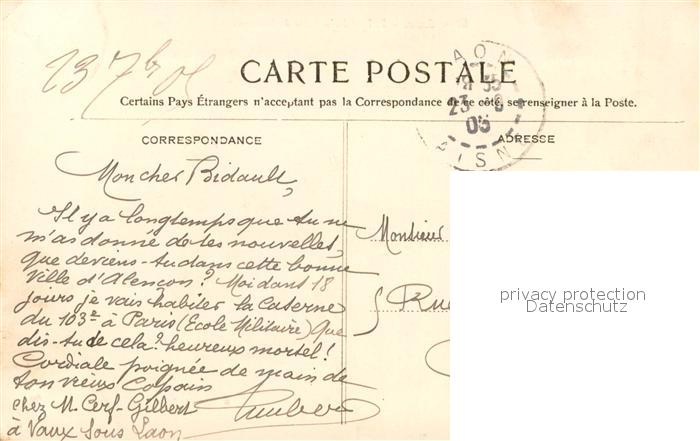 23 7bre 05
CARTE POSTALE
Certains Pays Étrangers n'acceptant pas la Correspondance de ce côté, se renseigner à la Poste.
CORRESPONDANCE
Mon cher Bidault,
Il y a longtemps que tu ne
m'as donné de tes nouvelles,
que deviens-tu dans cette bonne
Ville d'Alençon? Moi dans 18
jours je vais habiter la Caserne
du 103e à Paris (Ecole Militaire) Que
dis-tu de cela? heureux mortel!
Cordiale poignée de main de
ton vieux Copain
chez M. Cerf-Gilbert
à Vaux sous Laon
AON
23-9
05
AISN
ADRESSE
Monsieur
Rue
privacy protection
Datenschutz